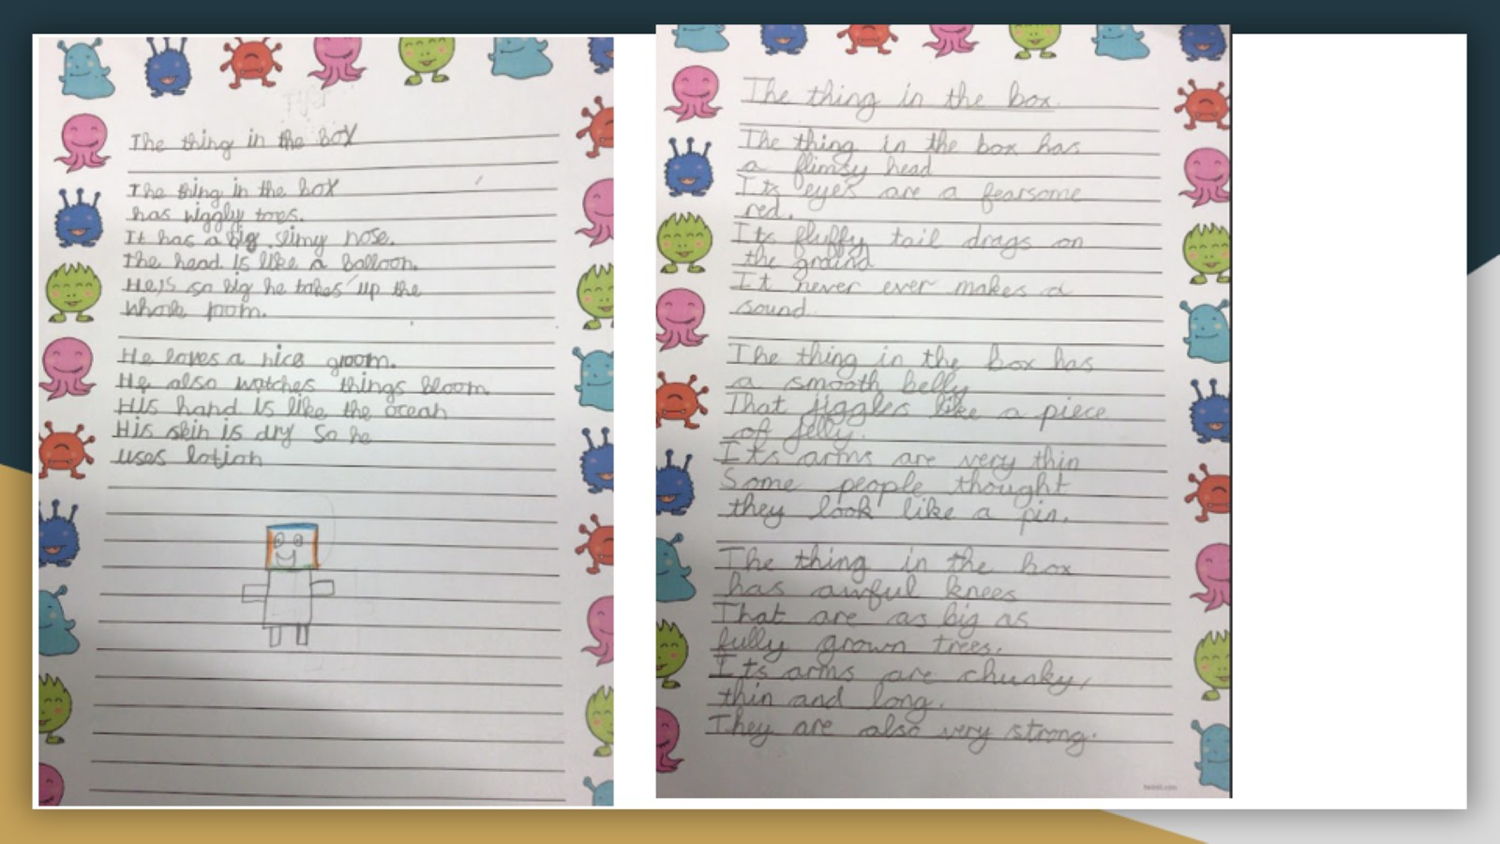 The thing in the box
The thing in the box
has wiggly toes.
It has a big slimy nose.
The head is like a balloon.
He is so big he takes up the
whole room.
He loves a nice groom.
He also watches things bloom.
His hand is like the ocean
His skin is dry so he
uses lotion
The thing in the box.
The thing in the box has
a flimsy head
Its eyes are a fearsome
red.
Its fluffy tail drags on
the ground
It never ever makes a
sound.
The thing in the box has
a smooth belly
That jiggles like a piece
of jelly.
Its arms are very thin
Some people thought
they look like a pin.
The thing in the box
has awful knees
That are as big as
fully grown trees.
Its arms are chunky,
thin and long.
They are also very strong.